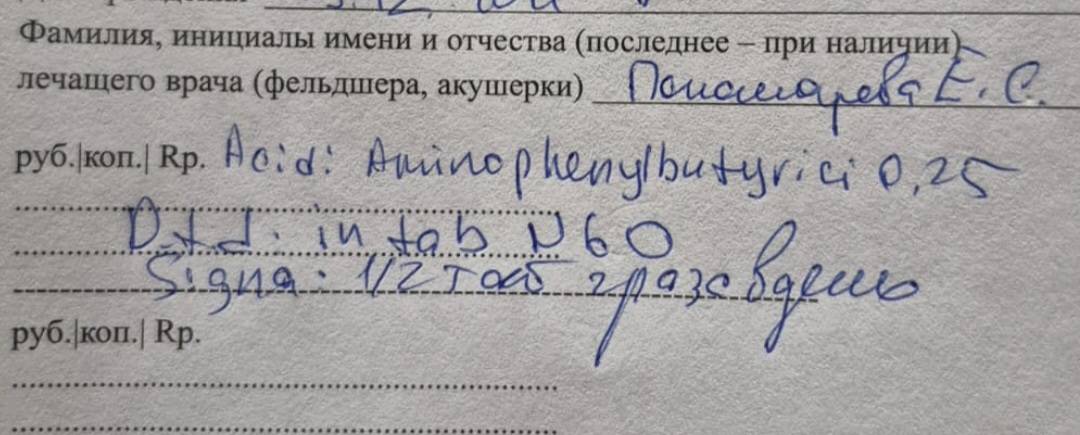 Фамилия, инициалы имени и отчества (последнее – при наличии)
лечащего врача (фельдшера, акушерки) Пономарева Е. С.
руб.|коп.| Rp. Acidi Aminophenylbutyrici 0,25
D.t.d. in tab N 60
Signa: 1/2 таб 2 раза в день
руб.|коп.| Rp.